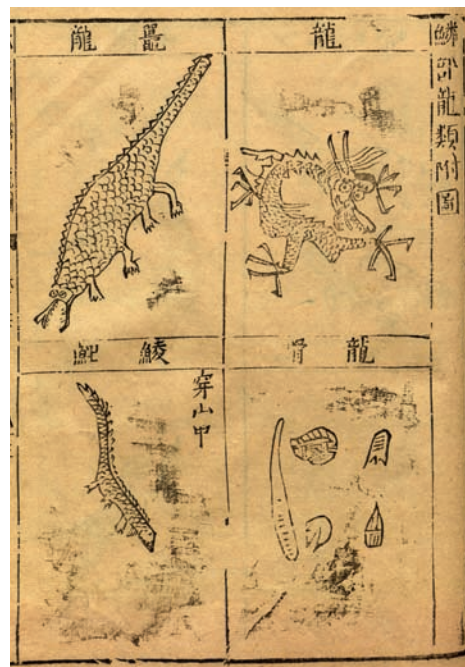 鱗部龍類附圖
龍
鼉龍
龍骨
鯪
穿山甲